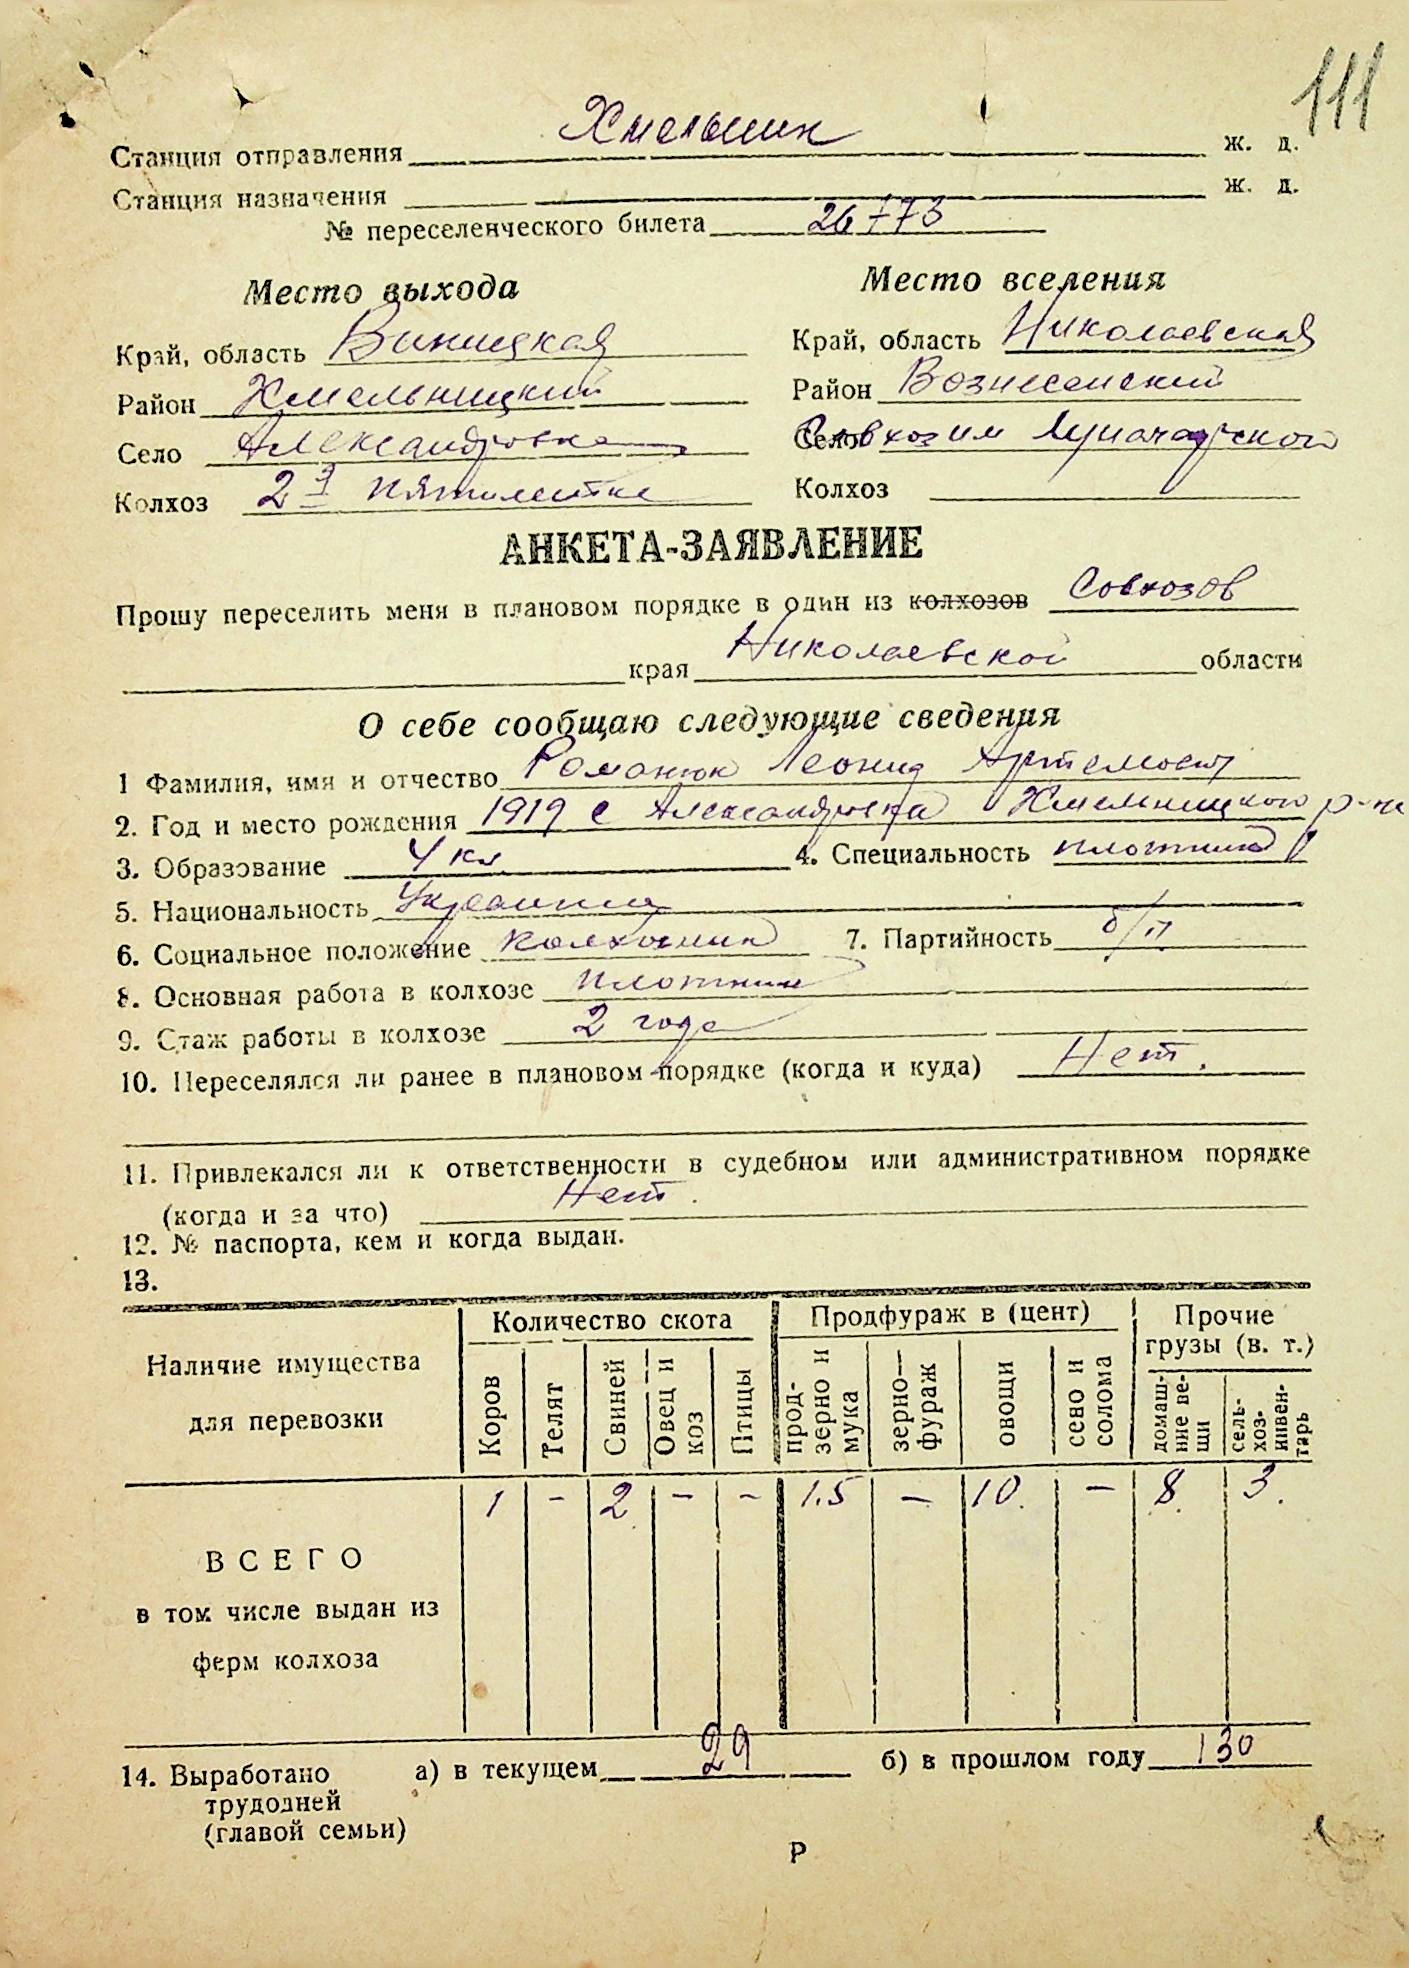 111
Станция отправления Хмельник ж. д.
Станция назначения ж. д.
№ переселенческого билета 26773
Место выхода
Край, область Виницкая
Район Хмельницкий
Село Александровка
Колхоз 2я пятилетка
Место вселения
Край, область Николаевская
Район Вознесенский
Село Совхоз им Луначарского
Колхоз
АНКЕТА-ЗАЯВЛЕНИЕ
Прошу переселить меня в плановом порядке в один из колхозов Совхозов
края Николаевской области
О себе сообщаю следующие сведения
1 Фамилия, имя и отчество Романюк Леонид Артемович
2. Год и место рождения 1919 с Александровка Хмельницкого р-на
3. Образование 4 кл 4. Специальность плотник
5. Национальность Украинец
6. Социальное положение колхозник 7. Партийность б/п
8. Основная работа в колхозе плотник
9. Стаж работы в колхозе 2 года
10. Переселялся ли ранее в плановом порядке (когда и куда) Нет.
11. Привлекался ли к ответственности в судебном или административном порядке
(когда и за что) Нет.
12. № паспорта, кем и когда выдан.
13.
Наличие имущества для перевозки
Количество скота
Продфураж в (цент)
Прочие грузы (в. т.)
Коров
Телят
Свиней
Овец и коз
Птицы
прод-зерно и мука
зерно—фураж
овощи
сено и солома
домаш-ние ве-щи
сель-хоз-инвен-тарь
1 - 2 - - 1.5 - 10. - 8. 3.
ВСЕГО
в том числе выдан из
ферм колхоза
14. Выработано а) в текущем 29 б) в прошлом году 130
трудодней
(главой семьи)
Р